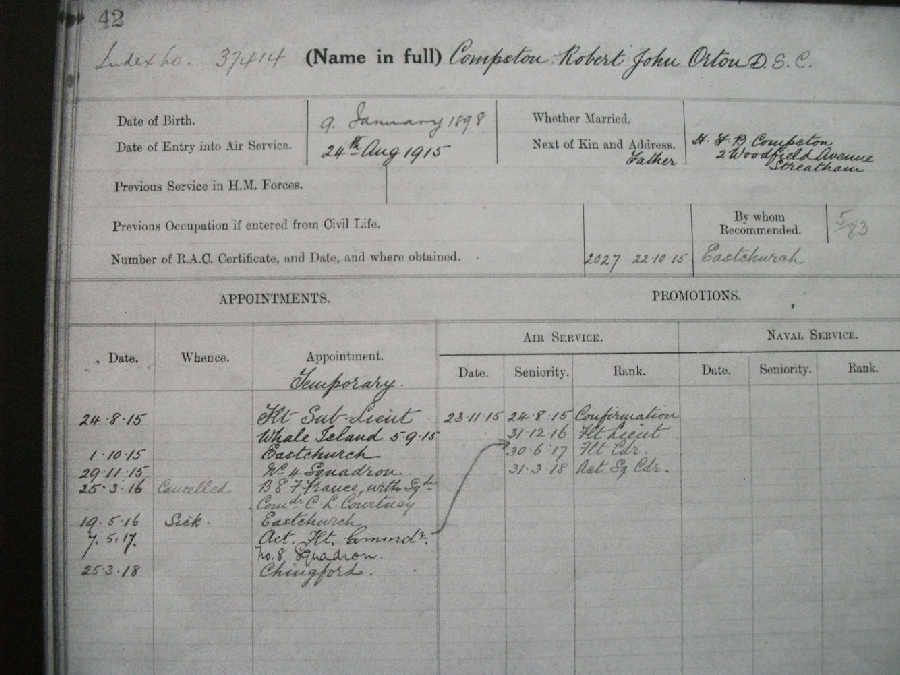 42
Index No. 37414 (Name in full) Compston Robert John Orton D.S.C.
Date of Birth. 9. January 1898 Whether Married,
Date of Entry into Air Service. 24th Aug 1915 Next of Kin and Address. H. F B Compston
Father 2 Woodfield Avenue
Streatham
Previous Service in H.M. Forces.
Previous Occupation if entered from Civil Life. By whom Recommended. 5/83
Number of R.A.C. Certificate, and Date, and where obtained. 2027 22 10 15 Eastchurch
APPOINTMENTS. PROMOTIONS.
AIR SERVICE. NAVAL SERVICE.
Date. Whence. Appointment. Date. Seniority. Rank. Date. Seniority. Rank.
Temporary.
24·8·15 Flt Sub-Lieut 23 11 15 24·8·15 Confirmation
Whale Island 5·9·15 31·12·16 Flt Lieut
1·10·15 Eastchurch 30·6·17 Flt Cdr.
29·11·15 No 4 Squadron 31·3·18 Act Sq Cdr.
25·3·16 Cancelled B E F France, with Sqdn
Comdr C L Courtney
19·5·16 Sick. Eastchurch
7.5.17. Act. Flt. Commdr.
No. 8 Squadron.
25·3·18 Chingford.